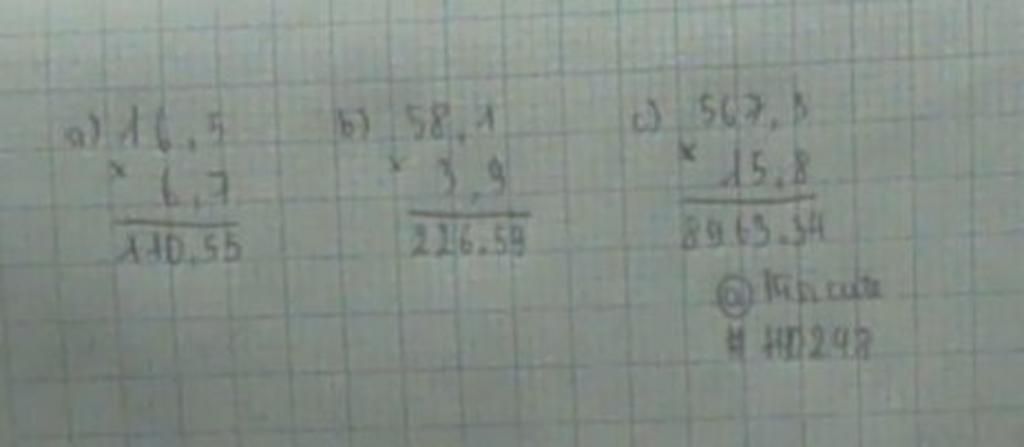 a) 16,5
x 6,7
110.55
b) 58,1
x 3,9
226.59
c) 567,3
x 15,8
8963.34
@
# HD248